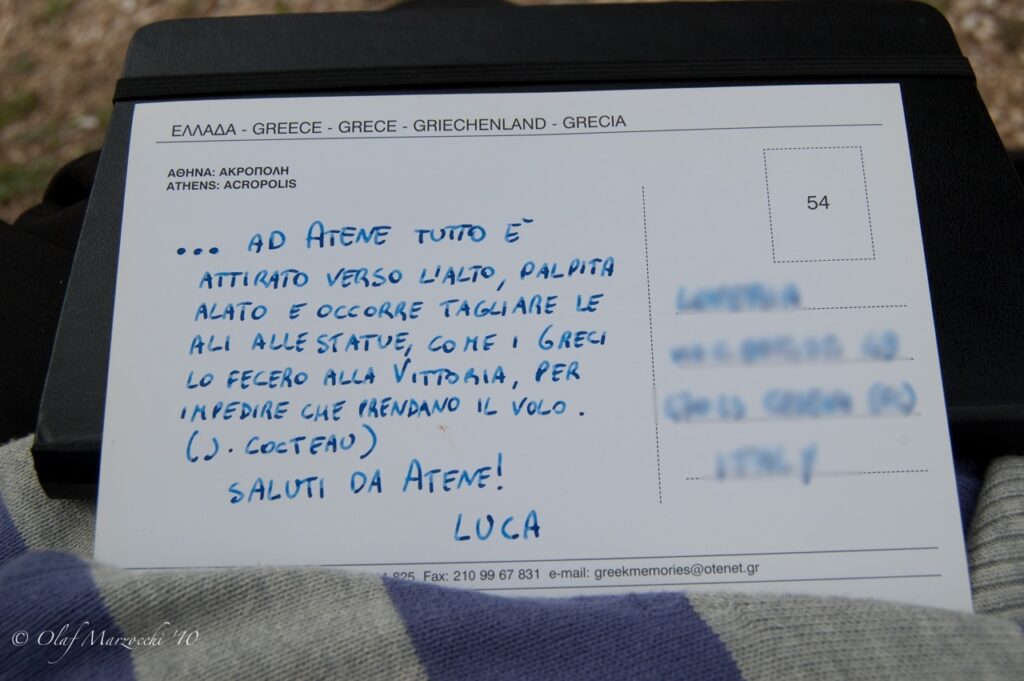 ΕΛΛΑΔΑ - GREECE - GRECE - GRIECHENLAND - GRECIA
ΑΘΗΝΑ: ΑΚΡΟΠΟΛΗ
ATHENS: ACROPOLIS
54
... AD ATENE TUTTO È
ATTIRATO VERSO L'ALTO, PALPITA
ALATO E OCCORRE TAGLIARE LE
ALI ALLE STATUE, COME I GRECI
LO FECERO ALLA VITTORIA, PER
IMPEDIRE CHE PRENDANO IL VOLO.
(J. COCTEAU)
SALUTI DA ATENE!
LUCA
ITALY
Fax: 210 99 67 831 e-mail: greekmemories@otenet.gr
© Olaf Marzocchi '10